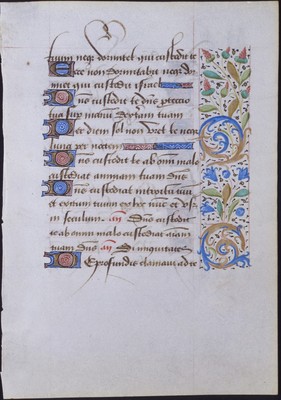 tuum neqz dormitet qui custodit te
Ecce non dormitabit neqz dor
miet qui custodit israel
Dns custodit te dns proteccio
tua sup manu dexteram tuam
Per diem sol non uret te neqz
luna per noctem
Dns custodit te ab omni malo
custodiat animam tuam dns
Dns custodiat introitum tuu
et exitum tuum ex hoc nuc et vsqz
in seculum an Dns custodit
te ab omni malo custodiat aiam
tuam dns an Si iniquitates
De profundis clamaui ad te